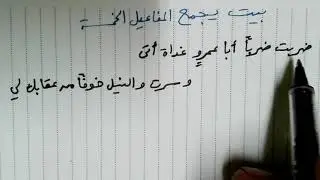 بيت يجمع المفاعيل الخمسة
ضربت ضرباً أبا عمروٍ غداة أتى
وسرت والنيل خوفاً من عقابك لي